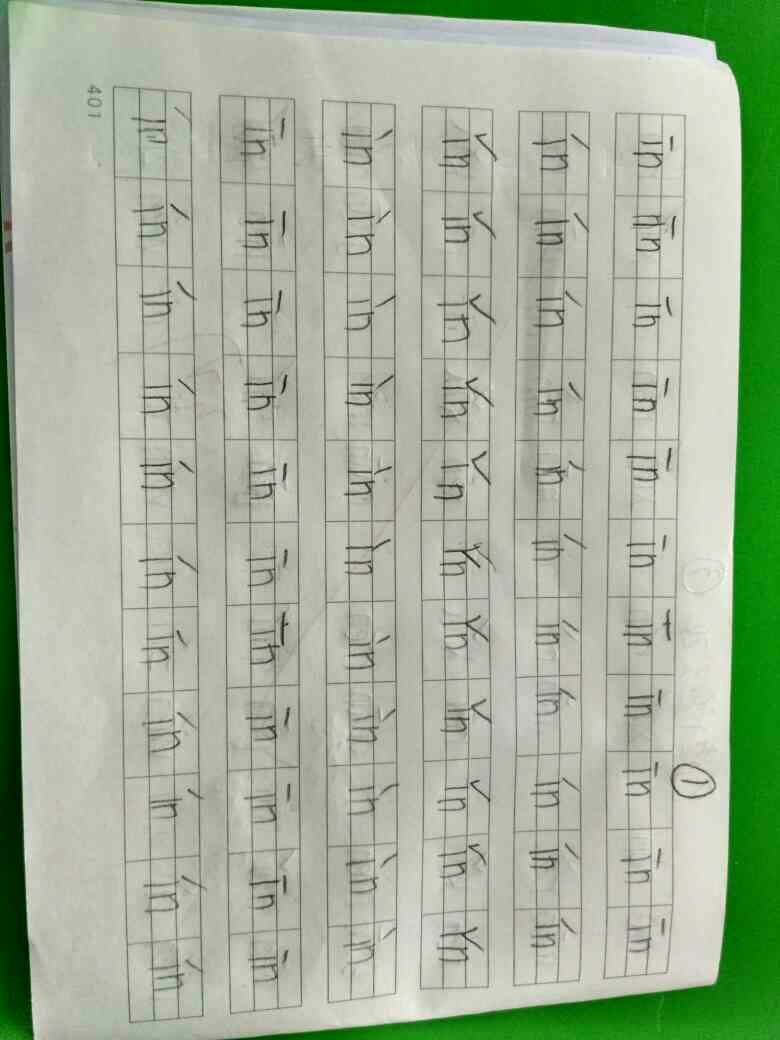 ①
īn īn īn īn īn īn īn īn īn īn īn
ín ín ín ín ín ín ín ín ín ín ín
ǐn ǐn ǐn ǐn ǐn ǐn ǐn ǐn ǐn ǐn ǐn
ìn ìn ìn ìn ìn ìn ìn ìn ìn ìn ìn
īn īn īn īn īn īn īn īn īn īn īn
ín ín ín ín ín ín ín ín ín ín ín
401